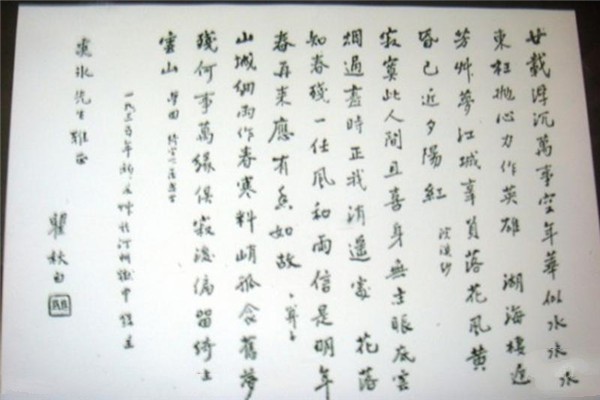 廿載浮沉萬事空年華似水水流
東枉拋心力作英雄 湖海棲遲
芳艸夢江城辜負落花風黃
昏已近夕陽紅 浣溪沙
寂寞此人間且喜身無主眼底雲
烟過盡時正我逍遙處 花落
知春殘一任風和雨信是明年
春再來應有香如故
山城細雨作春寒料峭孤衾舊夢
殘何事萬緣俱寂後偏留綺
雲山
一九三五年於汀州獄中
先生雅正
瞿秋白